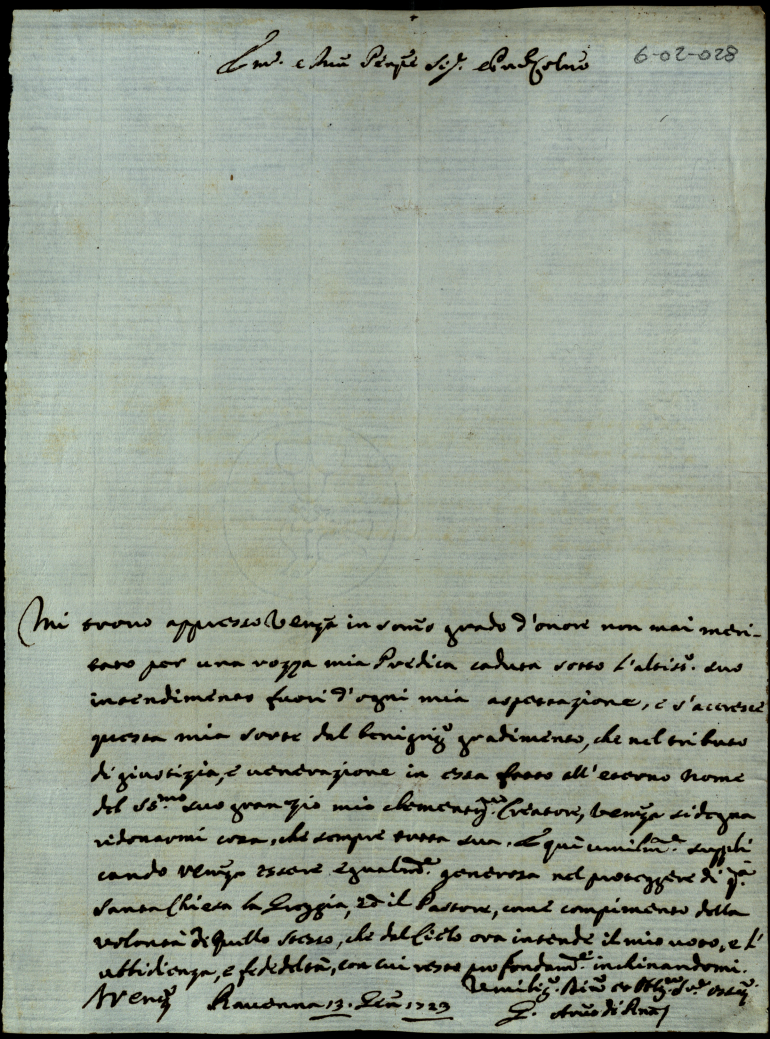 6-02-028
Em.º e Rmo Pñpe Sig.r e Pad. Colmo
Mi trovo appresso Vemza in som̃o grado d'onore non mai meri-
tato per una rozza mia Predica caduta sotto l'altis.mo suo
intendimento fuori d'ogni mia aspettazione, e s'accresce
questa mia sorte dal benignis.mo gradimento, che nel tributo
di giustizia, e venerazione in essa fatto all'eterno Nome
del SS.mo suo gran zio mio clementis.mo Creatore, Vemza si degna
ridonarmi cosa, che sempre tutta sua. E quì umilm.e suppli
cando Vemza essere egualm.e generosa nel proteggere di q.ta
Santa Chiesa la Greggia, ed il Pastore, come compimento della
volontà di Quello stesso, che dal Cielo ora intende il mio voto, e l'
ubbidienza, e fedeltà, con cui resto profondam.e inclinandomi.
Vemza Ravenna 13. Gen. 1729
Umilis.mo Div.mo ed Obl.mo Ser.
G. Arciv.o di Rav.